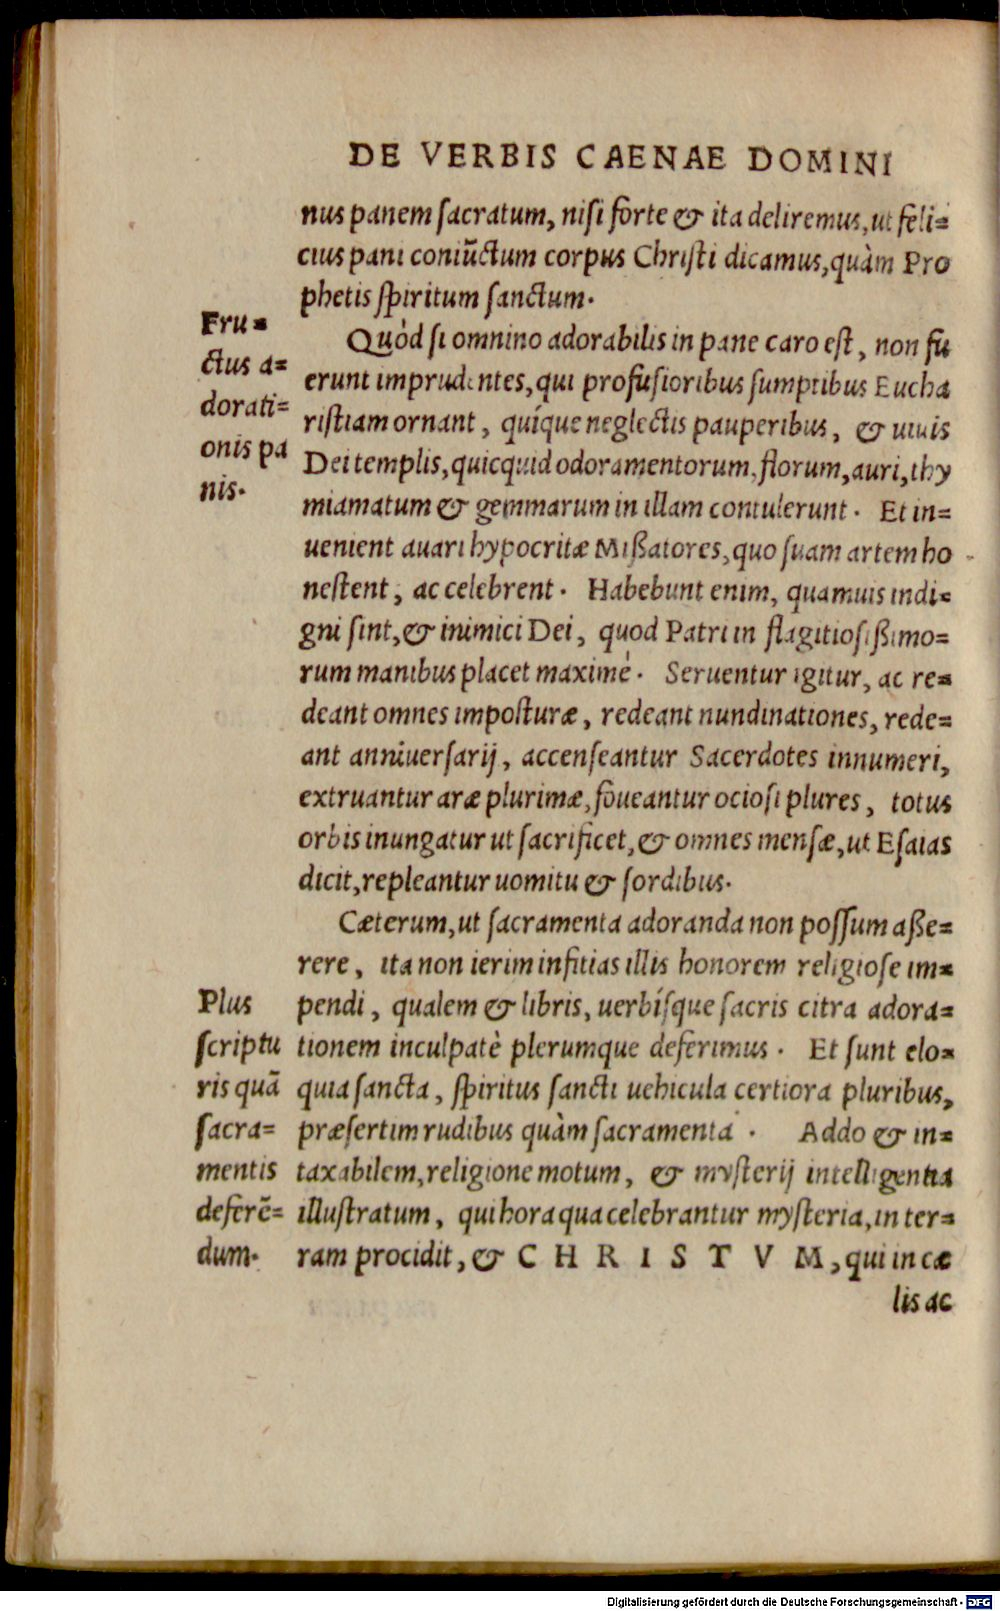 DE VERBIS CAENAE DOMINI
nus panem sacratum, nisi forte & ita deliremus, ut feli=
cius pani coniũctum corpus Christi dicamus, quàm Pro
phetis spiritum sanctum.
Fru=
ctus a=
dorati=
onis pa
nis.
Quòd si omnino adorabilis in pane caro est, non fu
erunt imprudentes, qui profusioribus sumptibus Eucha
ristiam ornant, quíque neglectis pauperibus, & uiuis
Dei templis, quicquid odoramentorum, florum, auri, thy
miamatum & gemmarum in illam contulerunt. Et in=
uenient auari hypocritæ Mißatores, quo suam artem ho
nestent, ac celebrent. Habebunt enim, quamuis indi=
gni sint, & inimici Dei, quod Patri in flagitiosißimo=
rum manibus placet maximè. Seruentur igitur, ac re=
deant omnes imposturæ, redeant nundinationes, rede=
ant anniuersarij, accenseantur Sacerdotes innumeri,
extruantur aræ plurimæ, foueantur ociosi plures, totus
orbis inungatur ut sacrificet, & omnes mensæ, ut Esaias
dicit, repleantur uomitu & sordibus.
Cæterum, ut sacramenta adoranda non possum aße=
rere, ita non ierim infitias illis honorem religiose im=
Plus
scriptu
ris quã
sacra=
mentis
deferẽ=
dum.
pendi, qualem & libris, uerbísque sacris citra adora=
tionem inculpatè plerumque deferimus. Et sunt elo=
quia sancta, spiritus sancti uehicula certiora pluribus,
præsertim rudibus quàm sacramenta. Addo & in=
taxabilem, religione motum, & mysterij intelligentia
illustratum, qui hora qua celebrantur mysteria, in ter=
ram procidit, & C H R I S T V M, qui in cæ
lis ac
Digitalisierung gefördert durch die Deutsche Forschungsgemeinschaft - DFG